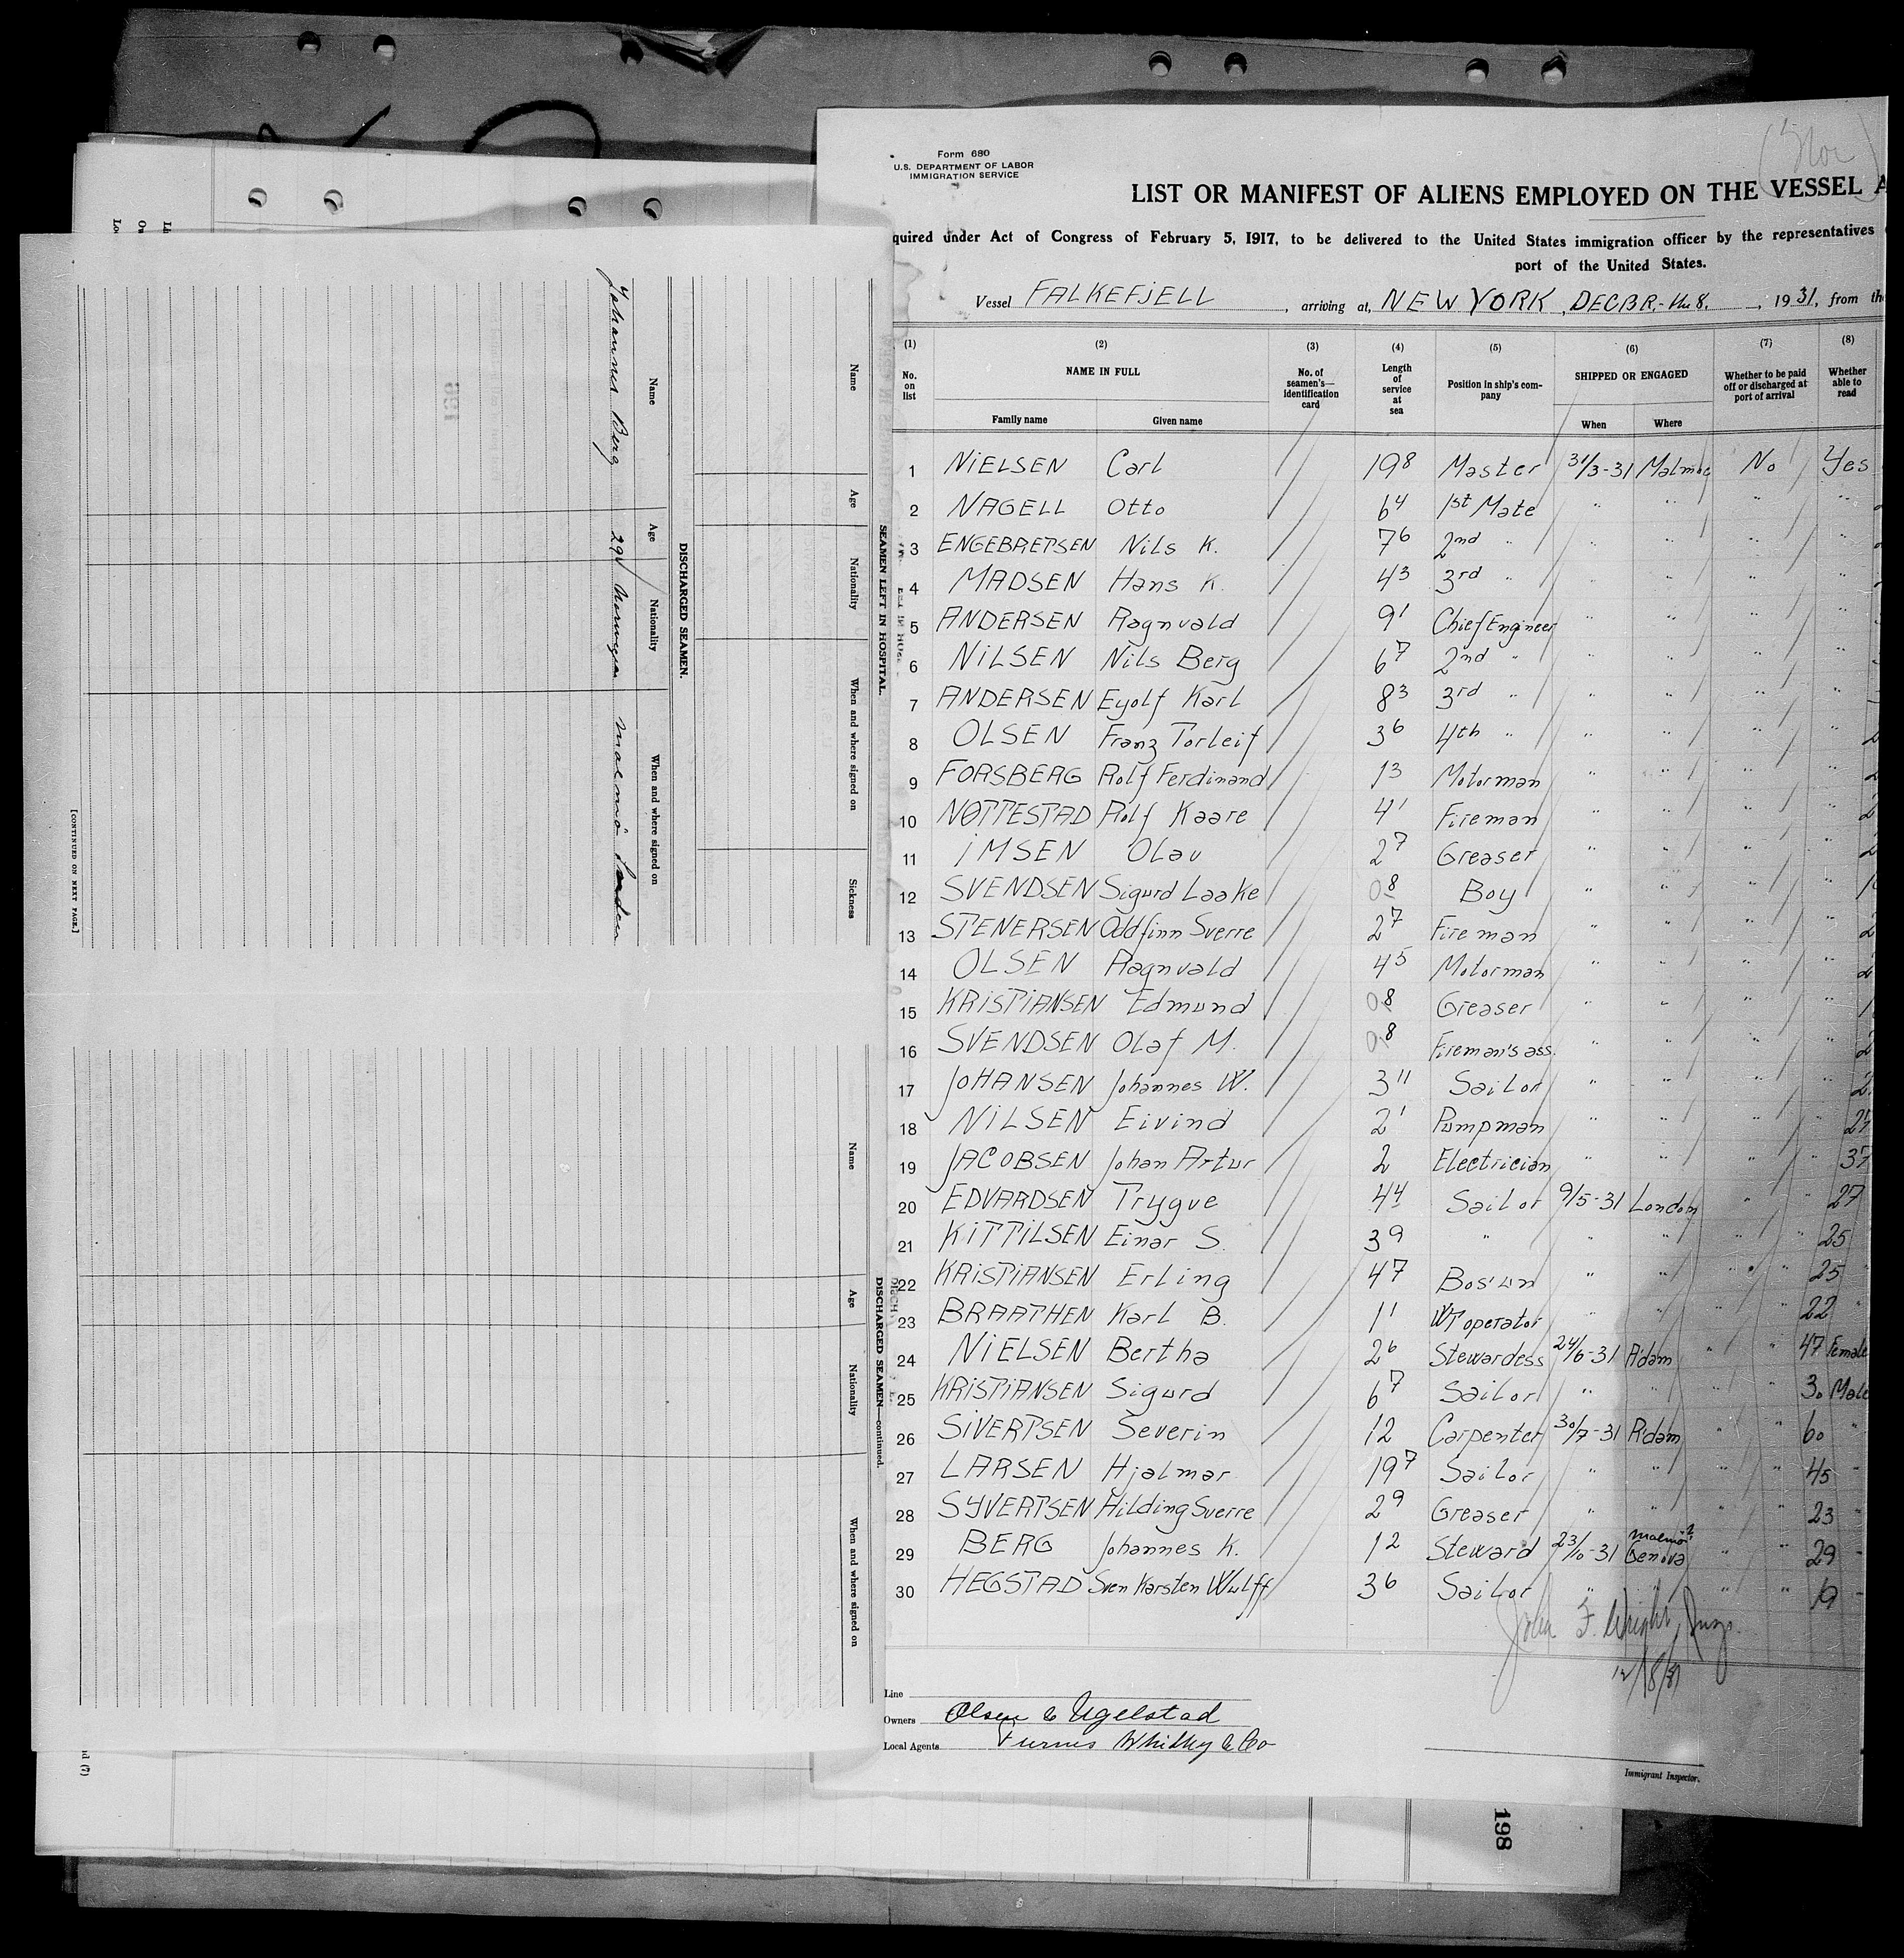 (Nor)
Form 680
U.S. DEPARTMENT OF LABOR
IMMIGRATION SERVICE
LIST OR MANIFEST OF ALIENS EMPLOYED ON THE VESSEL A
quired under Act of Congress of February 5, 1917, to be delivered to the United States immigration officer by the representatives
port of the United States.
Vessel FALKEFJELL, arriving at, NEW YORK, DECBR.- the 8., 1931, from the
(1) (2) (3) (4) (5) (6) (7) (8)
No. on list NAME IN FULL No. of seamen's— identification card Length of service at sea Position in ship's company SHIPPED OR ENGAGED Whether to be paid off or discharged at port of arrival Whether able to read
Family name Given name When Where
1 NIELSEN Carl 19 8 Master 31/3-31 Malmoe No Yes
2 NAGELL Otto 6 4 1st Mate " " " "
3 ENGEBRETSEN Nils K. 7 6 2nd " " " " "
4 MADSEN Hans K. 4 3 3rd " " " " "
5 ANDERSEN Ragnvald 9 1 Chief Engineer " " " "
6 NILSEN Nils Berg 6 7 2nd " " " " "
7 ANDERSEN Eyolf Karl 8 3 3rd " " " " "
8 OLSEN Franz Torleif 3 6 4th " " " " "
9 FORSBERG Rolf Ferdinand 1 3 Motorman " " " "
10 NØTTESTAD Rolf Kaare 4 1 Fireman " " " "
11 IMSEN Olav 2 7 Greaser " " " "
12 SVENDSEN Sigurd Laake 0 8 Boy " " " "
13 STENERSEN Oddfinn Sverre 2 7 Fireman " " " "
14 OLSEN Ragnvald 4 5 Motorman " " " "
15 KRISTIANSEN Edmund 0 8 Greaser " " " "
16 SVENDSEN Olaf M. 0 8 Fireman's ass. " " " "
17 JOHANSEN Johannes W. 3 11 Sailor " " " "
18 NILSEN Eivind 2 1 Pumpman " " " "
19 JACOBSEN Johan Artur 2 Electrician " " " " 37
20 EDVARDSEN Trygve 4 4 Sailor 9/5-31 London " " 27
21 KITTILSEN Einar S. 3 9 " " " " " 25
22 KRISTIANSEN Erling 4 7 Bos'un " " " " 25
23 BRAATHEN Karl B. 1 1 WT operator " " " " 22 "
24 NIELSEN Bertha 2 6 Stewardess 24/6-31 A'dam " " 47 Female
25 KRISTIANSEN Sigurd 6 7 Sailor " " " " 30 Male
26 SIVERTSEN Severin 12 Carpenter 30/7-31 R'dam " " 60 "
27 LARSEN Hjalmar 19 7 Sailor " " " " 45 "
28 SYVERTSEN Hilding Sverre 2 9 Greaser " " " " 23 "
29 BERG Johannes K. 1 2 Steward 23/10-31 Malmö Genova " " 29 "
30 HEGSTAD Sven Karsten Wulff 3 6 Sailor " " " " 19 "
John F. Wright, Insp.
12/8/31
Line
Owners Olsen & Ugelstad
Local Agents Furness Whithy & Co
Immigrant Inspector.
198
SEAMEN LEFT IN HOSPITAL.
Name Age Nationality When and where signed on Sickness
DISCHARGED SEAMEN.
Name Age Nationality When and where signed on
Johannes Berg 29 Norwegian Malmö Sweden
[CONTINUED ON NEXT PAGE.]
DISCHARGED SEAMEN—continued.
Name Age Nationality When and where signed on